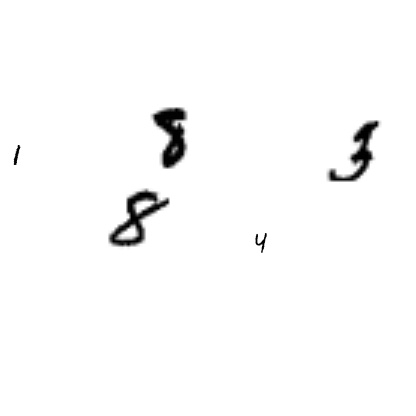 1 8 3
8 4